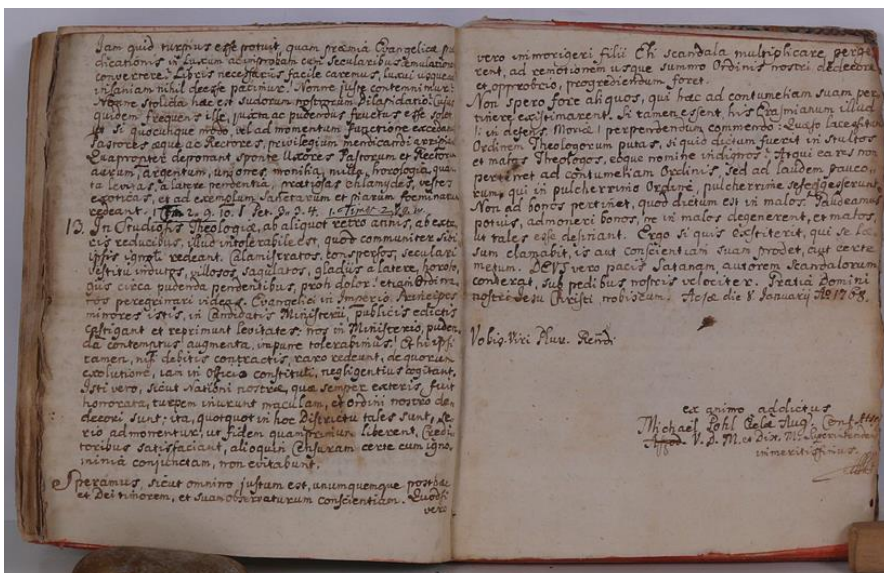 Jam quid turpius esse potuit, quam præmia Evangelicæ
dicationis in luxum ac improbam cum secularibus æmulationem
convertere? Libris necessariis facile caremus, luxui usque ad
insaniam nihil deesse patimur. Nonne juste contemnimur?
Nonne stolida hæc est sudorum nostrorum dilapidatio? Cujus
quidem frequens ille, juxta ac pudendus fructus esse solet
ut si quocunque modo, vel ad momentum functione excedant
Pastores æque ac Rectores, privilegium mendicandi arripiant
Quapropter deponant sponte Uxores Pastorum et Rectorum
aurum, argentum, uniones, monilia, horologia,
levitas, a latere pendentia, pretiosas chlamydes, vestes
exoticas, et ad exemplum Sanctarum et piarum foeminarum
redeant. 1 Tim 2. 9. 10. 1 Pet. 3. 3. 4.
13. In Studiosis Theologiæ, ab aliquot retro annis, ab exte-
ris reducibus, illud intolerabile est, quod communiter sibi
ipsis ignoti redeant. Calamistratos, conspersos, seculari
vestitu indutos, pillosos, sagulatos, gladiis a latere, horolo-
giis circa pudenda pendentibus, proh dolor! etiam Ordina-
tos peregrinari videas. Evangelici in Imperio Principes
minores istis, in Candidatis Ministerii, publicis edictis
castigant et reprimunt levitates: nos in Ministerio, puden-
da contemptus augmenta, impune tolerabimus? Et hi ipsi
tamen, nisi debitis contractis, raro redeunt, de quorum
exolutione, jam in Officio constituti, negligentius cogitant.
Isti vero, sicut Nationi nostræ, quæ semper exteris, fuit
honorata, turpem inurunt maculam, et ordini nostro de-
decori sunt: ita, quotquot in hoc Districtu tales sunt, se-
rio admonentur, ut fidem quam primum liberent, Credi-
toribus satisfaciant, alioquin Censuram certe cum igno-
minia conjunctam, non evitabunt.
Speramus, sicut omnino justum est, unumquemque posthac
et Dei timorem, et suam observaturum conscientiam. Quodsi
vero
vero inmorigeri filii Eli scandala multiplicare perge-
rent, ad remotionem usque summo Ordinis nostri dedecore
et opprobrio, progrediendum foret.
Non spero fore aliquos, qui hæc ad contumeliam suam per-
tinere existimarent. Si tamen essent, his Erasmianum illud
in defens. Moriæ perpendendum commendo: Quaso
Ordinem Theologorum putas, si quid dictum fuerit in stultos
et malos Theologos, eoque nomine indignos? Atqui ea res non
pertinet ad contumeliam Ordinis, sed ad laudem pauco-
rum, qui in pulcherrimo Ordine, pulcherrime sese gesserunt.
Non ad bonos pertinet, quod dictum est in malos. Gaudeamus
potius, admoneri bonos, ne in malos degenerent, et malos,
ut tales esse desinant. Ergo si quis exstiterit, qui se læ-
sum clamabit, is aut conscientiam suam prodet, aut certe
metum. DEUS vero pacis Satanam, autorem Scandalorum
conterat, sub pedibus nostris velociter. Gratia Domini
nostri Jesu Christi nobiscum. Acsæ die 8 Januarij Ao 1768.
Vobis Viri Plur. Rendi
ex animo addictus
Michaël Pohl Ecclæ Aug. Conf.
V. D. M. et Dist. M. Superintendens
immeritissimus.